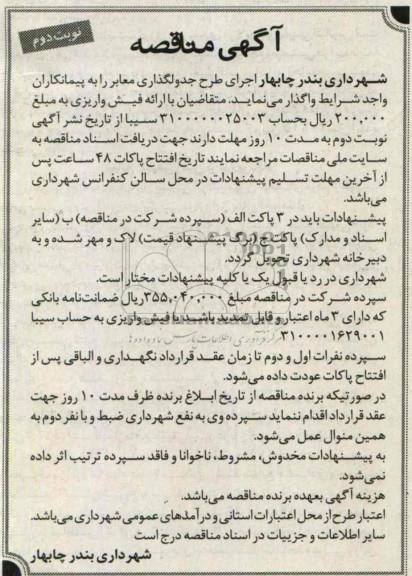 نوبت دوم
آگهی مناقصه
شهرداری بندر چابهار اجرای طرح جدولگذاری معابر را به پیمانکاران
واجد شرایط واگذار می‌نماید. متقاضیان با ارائه فیش واریزی به مبلغ
۲۰۰,۰۰۰ ریال بحساب ۳۱۰۰۰۰۰۰۲۵۰۰۳ سیبا از تاریخ نشر آگهی
نوبت دوم به مدت ۱۰ روز مهلت دارند جهت دریافت اسناد مناقصه به
سایت ملی مناقصات مراجعه نمایند تاریخ افتتاح پاکات ۴۸ ساعت پس
از آخرین مهلت تسلیم پیشنهادات در محل سالن کنفرانس شهرداری
می‌باشد.
پیشنهادات باید در ۳ پاکت الف (سپرده شرکت در مناقصه) ب (سایر
اسناد و مدارک) پاکت ج (برگ پیشنهاد قیمت) لاک و مهر شده و به
دبیرخانه شهرداری تحویل گردد.
شهرداری در رد یا قبول یک یا کلیه پیشنهادات مختار است.
سپرده شرکت در مناقصه مبلغ ۳۵۵,۰۴۰,۰۰۰ ریال ضمانت‌نامه بانکی
که دارای ۳ ماه اعتبار و قابل تمدید باشد یا فیش واریزی به حساب سیبا
۳۱۰۰۰۰۱۶۲۹۰۰۱
سپرده نفرات اول و دوم تا زمان عقد قرارداد نگهداری و الباقی پس از
افتتاح پاکات عودت داده می‌شود.
در صورتیکه برنده مناقصه از تاریخ ابلاغ برنده ظرف مدت ۱۰ روز جهت
عقد قرارداد اقدام ننماید سپرده وی به نفع شهرداری ضبط و با نفر دوم به
همین منوال عمل می‌شود.
به پیشنهادات مخدوش، مشروط، ناخوانا و فاقد سپرده ترتیب اثر داده
نمی‌شود.
هزینه آگهی بعهده برنده مناقصه می‌باشد.
اعتبار طرح از محل اعتبارات استانی و درآمدهای عمومی شهرداری می‌باشد.
سایر اطلاعات و جزییات در اسناد مناقصه درج است
شهرداری بندر چابهار